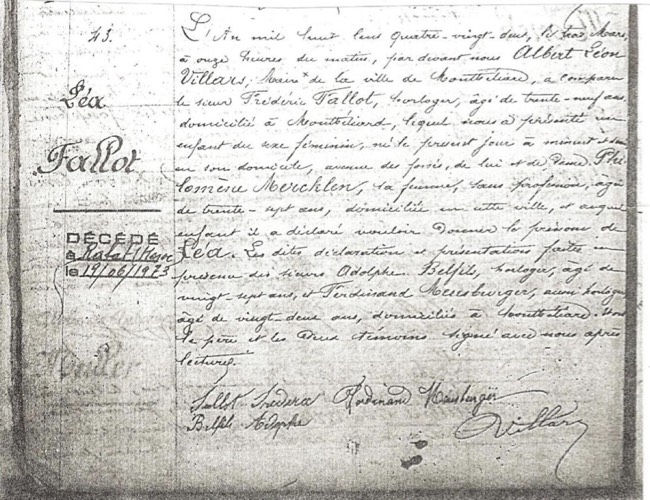 43.
Léa
Fallot
DÉCÉDÉ
à Rabat (Maroc
le 19/06/1973
L'An mil huit cent quatre-vingt-deux, le trois Mars,
à onze heures du matin, par devant nous Albert Léon
Villars, Maire de la ville de Montbéliard, a comparu
le sieur Frédéric Fallot, horloger, âgé de trente-neuf ans
domicilié à Montbéliard, lequel nous a présenté un
enfant du sexe féminin, né le présent jour à minuit
en son domicile, avenue des fossés, de lui et de Dame Phi
lomène Mercklen, sa femme, sans profession, âgée
de trente-sept ans, domiciliée en cette ville, et auquel
enfant il a déclaré vouloir donner le prénom de
Léa. Les dites déclaration et présentations faites en
présence des sieurs Adolphe Belfils, horloger, âgé de
vingt-sept ans, et Ferdinand Meusburger, aussi horloger
âgé de vingt-deux ans, domiciliés à Montbéliard.
le père et les deux témoins signé avec nous après
lecture.
Fallot Frédéric Ferdinand Meusburger
Belfils Adolphe
Villars